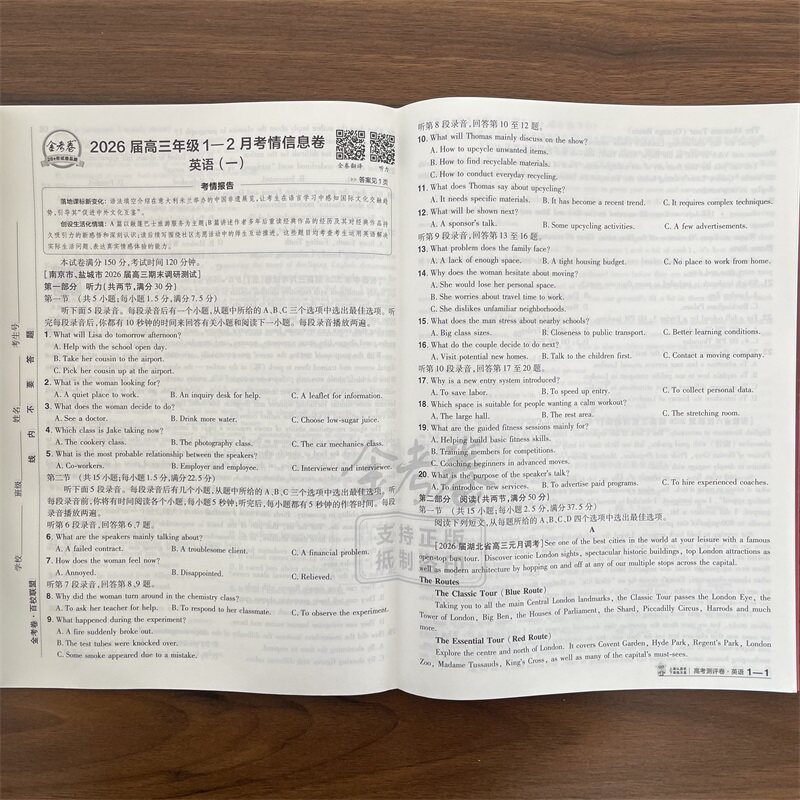 金考卷
2026 届高三年级 1—2 月考情信息卷
英语 (一)
全卷翻译
听力
>> 答案见 1 页
考情报告
落地课标新变化：语法填空介绍在意大利米兰举办的中国非遗展览，让考生在语言学习中感知国际文化交融趋
势，引导其“促进中外文化互鉴”。
创设生活化情境：A 篇以敞篷巴士旅游服务为主题；B 篇讲述作者多年后重读经典作品的经历及其对经典作品持
久吸引力的新感悟和深刻认识；读后续写围绕社区志愿活动中的师生互动推进。这些题目均考查考生用英语解决
实际生活问题、表达真实情感体验的能力。
本试卷满分 150 分，考试时间 120 分钟。
[南京市、盐城市 2026 届高三期末调研测试]
第一部分 听力(共两节，满分 30 分)
第一节 (共 5 小题；每小题 1.5 分，满分 7.5 分)
听下面 5 段录音。每段录音后有一个小题，从题中所给的 A、B、C 三个选项中选出最佳选项。听
完每段录音后，你都有 10 秒钟的时间来回答有关小题和阅读下一小题。每段录音播放两遍。
1. What will Lisa do tomorrow afternoon?
A. Help with the school open day.
B. Take her cousin to the airport.
C. Pick her cousin up at the airport.
2. What is the woman looking for?
A. A quiet place to work. B. An inquiry desk for help. C. A leaflet for information.
3. What does the woman decide to do?
A. See a doctor. B. Drink more water. C. Choose low-sugar juice.
4. Which class is Jake taking now?
A. The cookery class. B. The photography class. C. The car mechanics class.
5. What is the most probable relationship between the speakers?
A. Co-workers. B. Employer and employee. C. Interviewer and interviewee.
第二节 (共 15 小题；每小题 1.5 分，满分 22.5 分)
听下面 5 段录音。每段录音后有几个小题，从题中所给的 A、B、C 三个选项中选出最佳选项。听
每段录音前，你将有时间阅读各个小题，每小题 5 秒钟；听完后，每小题都有 5 秒钟的作答时间。每段
录音播放两遍。
听第 6 段录音，回答第 6、7 题。
6. What are the speakers mainly talking about?
A. A failed contract. B. A troublesome client. C. A financial problem.
7. How does the woman feel now?
A. Annoyed. B. Disappointed. C. Relieved.
听第 7 段录音，回答第 8、9 题。
8. Why did the woman turn around in the chemistry class?
A. To ask her teacher for help. B. To respond to her classmate. C. To observe the experiment.
9. What happened during the experiment?
A. A fire suddenly broke out.
B. The test tubes were knocked over.
C. Some smoke appeared due to a mistake.
考生号
姓名
班级
学校
线 内 不 要 答 题
金考卷·百校联盟
听第 8 段录音，回答第 10 至 12 题。
10. What will Thomas mainly discuss on the show?
A. How to upcycle unwanted items.
B. How to find recyclable materials.
C. How to conduct everyday recycling.
11. What does Thomas say about upcycling?
A. It needs specific materials. B. It has become a recent trend. C. It requires complex techniques.
12. What will be shown next?
A. A sponsor's talk. B. Some upcycling activities. C. A few advertisements.
听第 9 段录音，回答第 13 至 16 题。
13. What problem does the family face?
A. A lack of enough space. B. A tight housing budget. C. No place to work from home.
14. Why does the woman hesitate about moving?
A. She would lose her personal space.
B. She worries about travel time to work.
C. She dislikes unfamiliar neighborhoods.
15. What does the man stress about nearby schools?
A. Big class sizes. B. Closeness to public transport. C. Better learning conditions.
16. What do the couple decide to do next?
A. Visit potential new homes. B. Talk to the children first. C. Contact a moving company.
听第 10 段录音，回答第 17 至 20 题。
17. Why is a new entry system introduced?
A. To save labor. B. To speed up entry. C. To collect personal data.
18. Which space is suitable for people wanting a calm workout?
A. The large hall. B. The rest area. C. The stretching room.
19. What are the guided fitness sessions mainly for?
A. Helping build basic fitness skills.
B. Training members for competitions.
C. Coaching beginners in advanced moves.
20. What is the purpose of the speaker's talk?
A. To introduce new services. B. To advertise paid programs. C. To hire experienced coaches.
第二部分 阅读(共两节，满分 50 分)
第一节 (共 15 小题；每小题 2.5 分，满分 37.5 分)
阅读下列短文，从每题所给的 A、B、C、D 四个选项中选出最佳选项。
A
[2026 届湖北省高三元月调考] See one of the best cities in the world at your leisure with a famous
open-top bus tour. Discover iconic London sights, spectacular historic buildings, top London attractions as
well as modern architecture by hopping on and off at any of our multiple stops across the capital.
The Routes
The Classic Tour (Blue Route)
Taking you to all the main Central London landmarks, the Classic Tour passes the London Eye, the
Tower of London, Big Ben, the Houses of Parliament, the Shard, Piccadilly Circus, Harrods and much
more.
The Essential Tour (Red Route)
Explore the centre and north of London. It covers Covent Garden, Hyde Park, Regent's Park, London
Zoo, Madame Tussauds, King's Cross, as well as many of the capital's must-sees.
高考测评卷·英语 1—1
金考卷
支持正版
抵制盗印